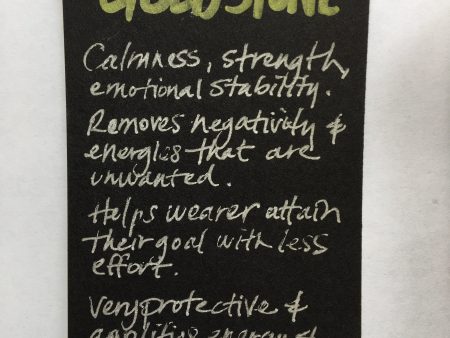 GOLDSTONE
Calmness, strength,
emotional stability.
Removes negativity &
energies that are
unwanted.
Helps wearer attain
their goal with less
effort.
Very protective &